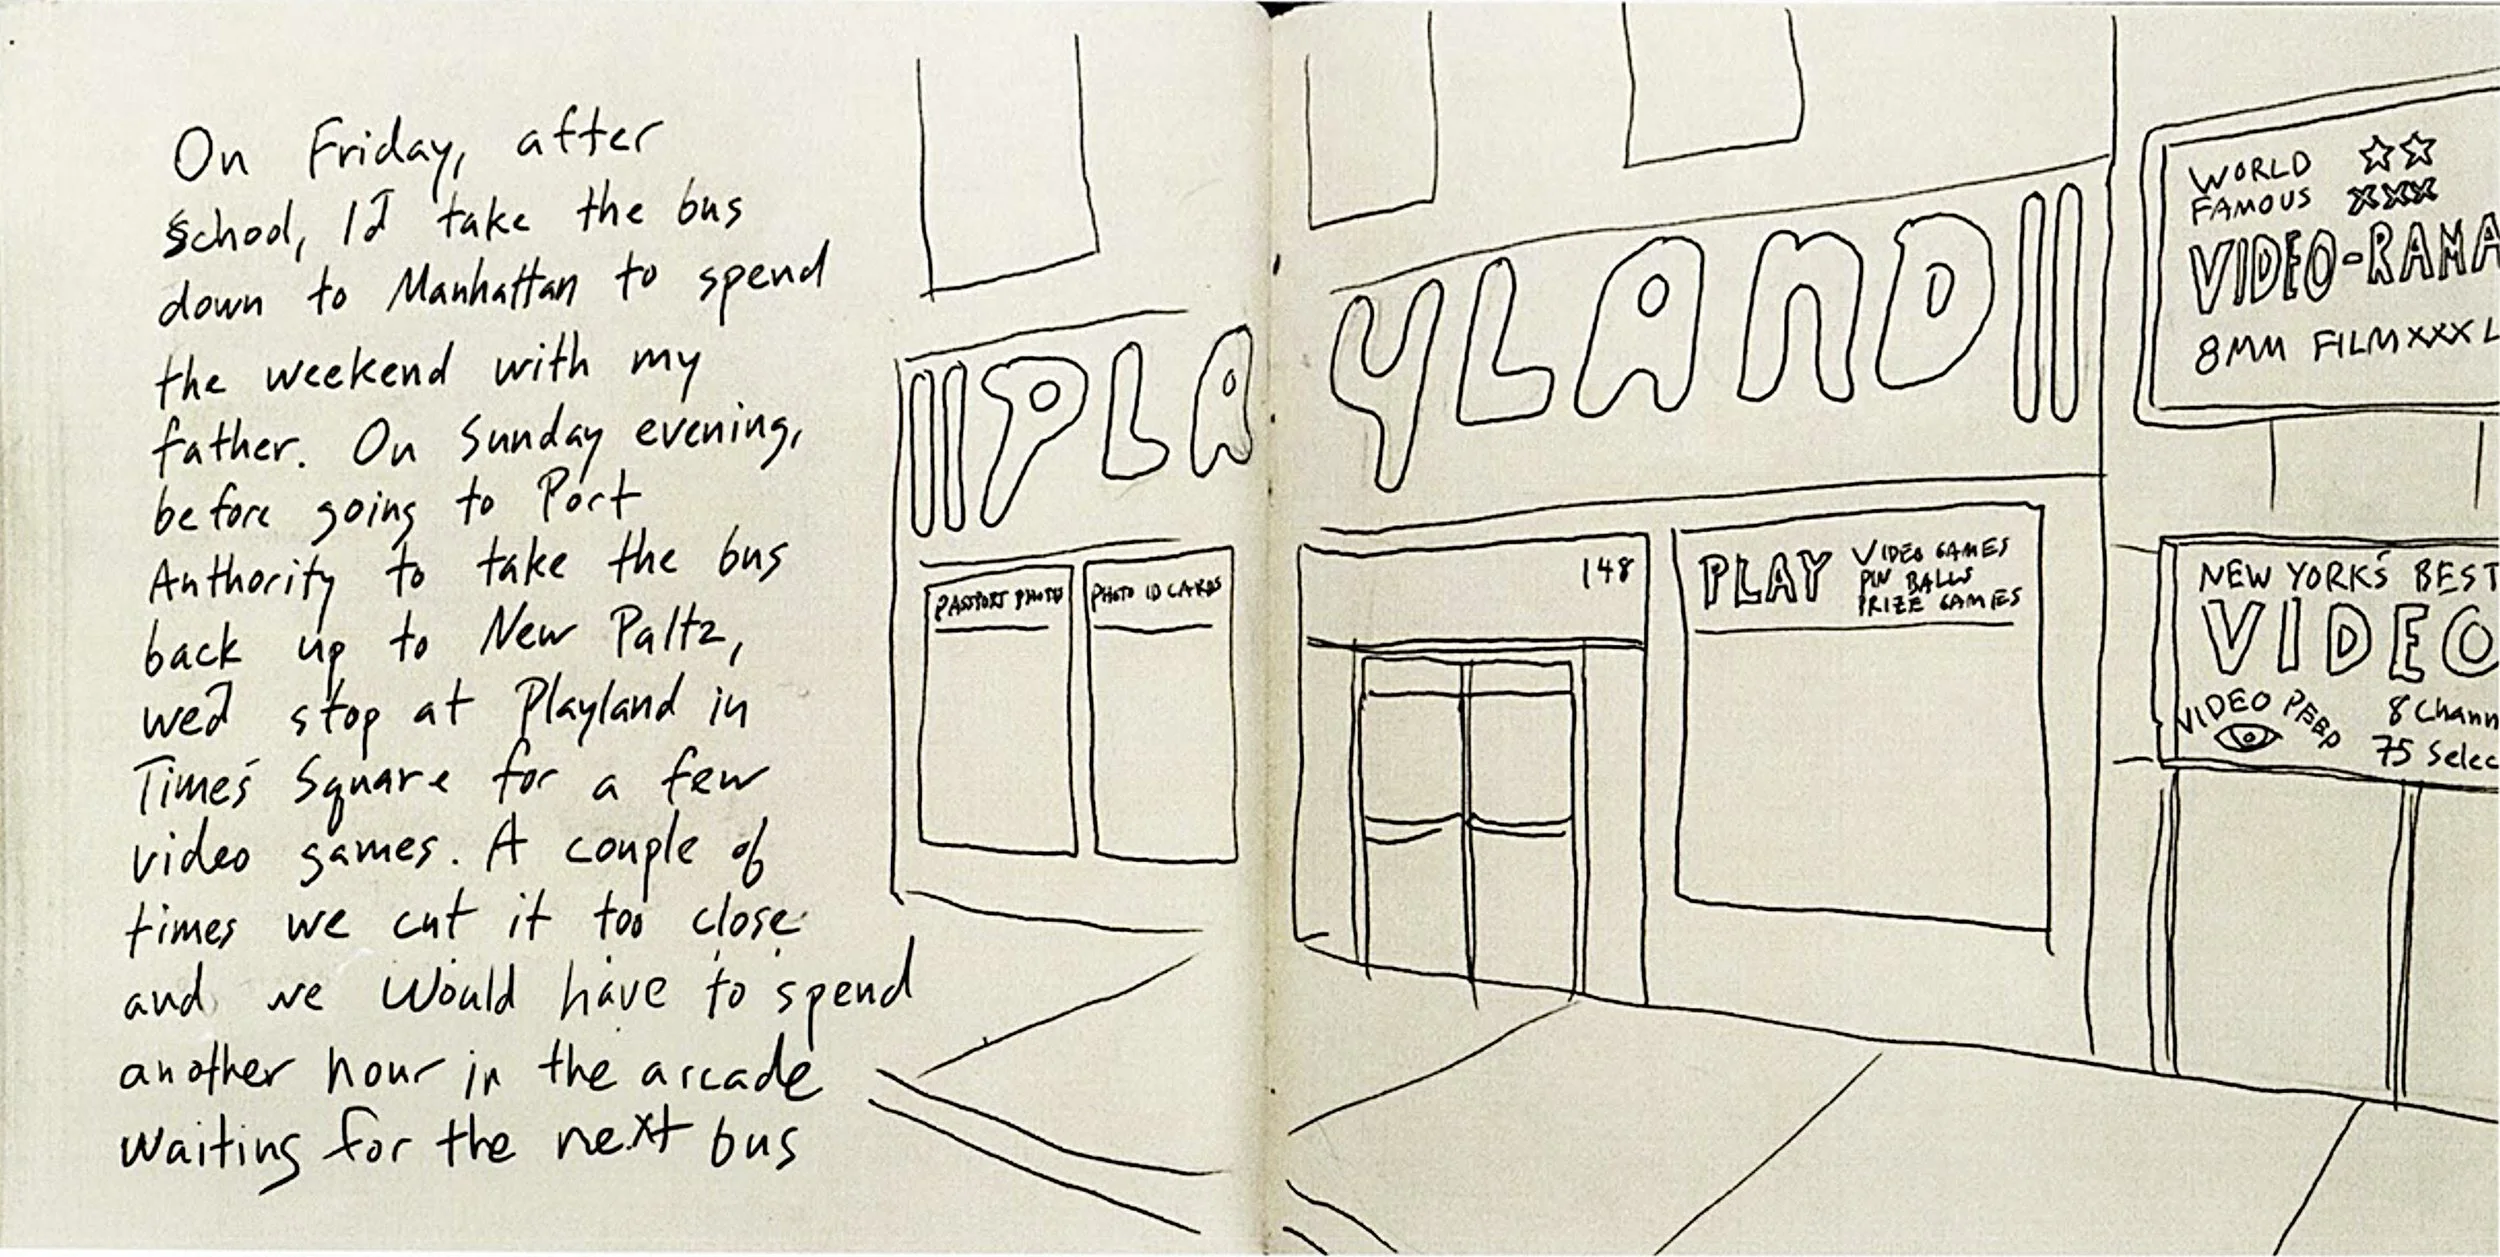 On Friday, after
school, I'd take the bus
down to Manhattan to spend
the weekend with my
father. On Sunday evening,
before going to Port
Authority to take the bus
back up to New Paltz,
we'd stop at Playland in
Time's Square for a few
video games. A couple of
times we cut it too close
and we would have to spend
another hour in the arcade
waiting for the next bus
PLAYLAND
PASSPORT PHOTOS
PHOTO ID CARDS
148
PLAY
VIDEO GAMES
PIN BALLS
PRIZE GAMES
WORLD
FAMOUS XXX
VIDEO-RAMA
8MM FILM XXX L
NEW YORK'S BEST
VIDEO
VIDEO PEEP
8 Chann
75 Selec